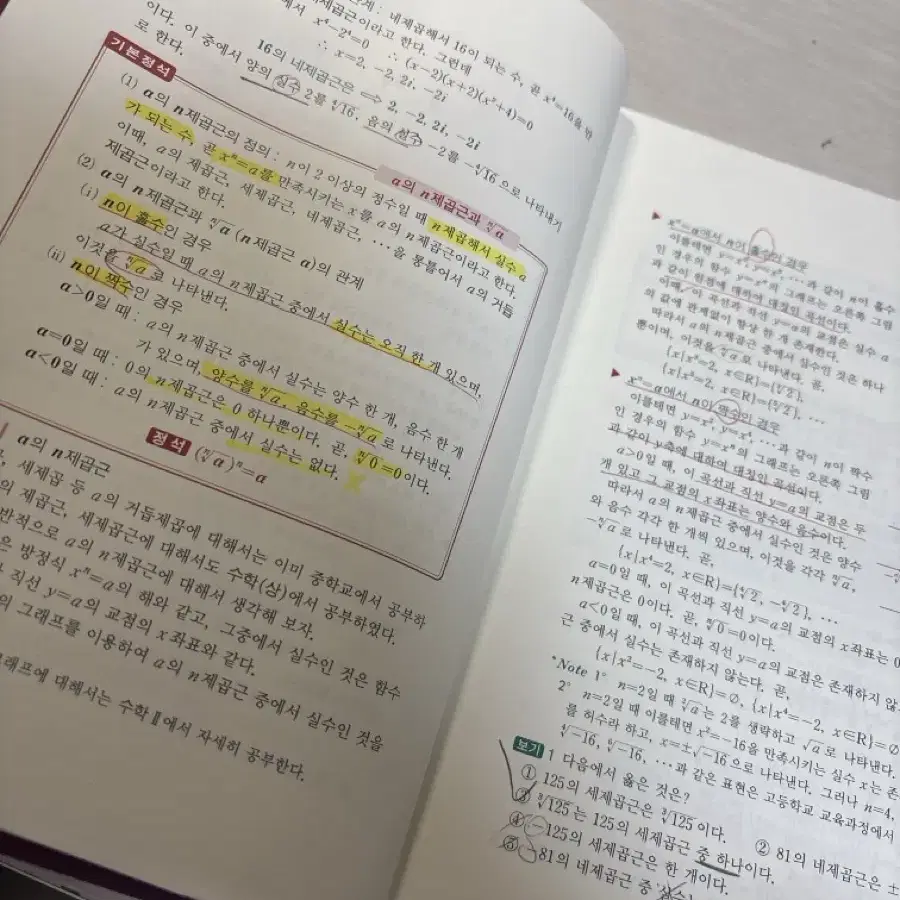 단계: 네제곱해서 16이 되는 수, 곧 x⁴=16을 만
네제곱근이라고 한다. 그런데
에서 x⁴-2⁴=0 ∴ (x-2)(x+2)(x²+4)=0
∴ x=2, -2, 2i, -2i
이다. 이 중에서 양의 실수 2를 ⁴√16, 음의 실수 -2를 -⁴√16으로 나타내기
로 한다.
16의 네제곱근은 ⟹ 2, -2, 2i, -2i
기본정석
a의 n제곱근과 ⁿ√a
(1) a의 n제곱근의 정의 : n이 2 이상의 정수일 때 n제곱해서 실수 a
가 되는 수, 곧 xⁿ=a를 만족시키는 x를 a의 n제곱근이라고 한다.
이때, a의 제곱근, 세제곱근, 네제곱근, …을 통틀어서 a의 거듭
제곱근이라고 한다.
(2) a의 n제곱근과 ⁿ√a (n제곱근 a)의 관계
(i) n이 홀수인 경우
a가 실수일 때 a의 n제곱근 중에서 실수는 오직 한 개 있으며,
이것을 ⁿ√a로 나타낸다.
(ii) n이 짝수인 경우
a>0일 때 : a의 n제곱근 중에서 실수는 양수 한 개, 음수 한 개
가 있으며, 양수를 ⁿ√a, 음수를 -ⁿ√a로 나타낸다.
a=0일 때 : 0의 n제곱근은 0 하나뿐이다. 곧, ⁿ√0=0이다.
a<0일 때 : a의 n제곱근 중에서 실수는 없다.
정석 (ⁿ√a)ⁿ=a
a의 n제곱근
세제곱 등 a의 거듭제곱에 대해서는 이미 중학교에서 공부하
의 제곱근, 세제곱근에 대해서도 수학(상)에서 공부하였다.
반적으로 a의 n제곱근에 대해서 생각해 보자.
은 방정식 xⁿ=a의 해와 같고, 그중에서 실수인 것은 함수
직선 y=a의 교점의 x좌표와 같다.
의 그래프를 이용하여 a의 n제곱근 중에서 실수인 것을
그래프에 대해서는 수학 Ⅱ에서 자세히 공부한다.
xⁿ=a에서 n이 홀수인 경우
이를테면 y=x³, y=x⁵, …과 같이 n이 홀수
인 경우의 함수 y=xⁿ의 그래프는 오른쪽 그림
과 같이 원점에 대하여 대칭인 곡선이다.
이때, 이 곡선과 직선 y=a의 교점은 실수 a
의 값에 관계없이 항상 한 개 존재한다.
따라서 a의 n제곱근 중에서 실수인 것은 하나
뿐이며, 이것을 ⁿ√a로 나타낸다. 곧,
{x|x³=2, x∈R}={³√2},
{x|x⁵=2, x∈R}={⁵√2}, …
xⁿ=a에서 n이 짝수인 경우
이를테면 y=x², y=x⁴, …과 같이 n이 짝수
인 경우의 함수 y=xⁿ의 그래프는 오른쪽 그림
과 같이 y축에 대하여 대칭인 곡선이다.
a>0일 때, 이 곡선과 직선 y=a의 교점은 두
개 있고 그 교점의 x좌표는 양수와 음수이다.
따라서 a의 n제곱근 중에서 실수인 것은 양수
와 음수 각각 한 개씩 있으며, 이것을 각각 ⁿ√a,
-ⁿ√a로 나타낸다. 곧,
{x|x⁴=2, x∈R}={⁴√2, -⁴√2}, …
a=0일 때, 이 곡선과 직선 y=a의 교점의 x좌표는 0
n제곱근은 0이다. 곧, ⁿ√0=0이다.
a<0일 때, 이 곡선과 직선 y=a의 교점은 존재하지 않
근 중에서 실수는 존재하지 않는다. 곧,
{x|x²=-2, x∈R}=∅, {x|x⁴=-2, x∈R}=∅
*Note 1° n=2일 때 ⁿ√a는 2를 생략하고 √a로 나타낸다.
2° n=2일 때 이를테면 x²=-16을 만족시키는 실수 x는 존
를 허수라 하고, x=±√-16으로 나타낸다. 그러나 n=4,
⁴√-16, ⁶√-16, …과 같은 표현은 고등학교 교육과정에서
보기 1 다음에서 옳은 것은?
① 125의 세제곱근은 ³√125이다.
② 81의 네제곱근은 ±
③ ³√125는 125의 세제곱근 중 하나이다.
④ -125의 세제곱근은 한 개이다.
⑤ -81의 네제곱근 중 실수